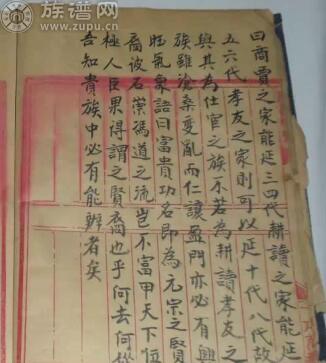 族谱网
www.zupu.cn
曰商賈之家能延三四代耕讀之家能延
五六代孝友之家則可以延十代八代故
與其為仕宦之族不若為耕讀孝友之
族雖滄桑變亂而仁讓盈門亦必有興
旺氣象語曰富貴功名即為元宗之賢
裔彼石崇馮道之流豈不富甲天下位
極人臣果得謂之賢裔也乎何去何從
吾知貴族中必有能辨者矣